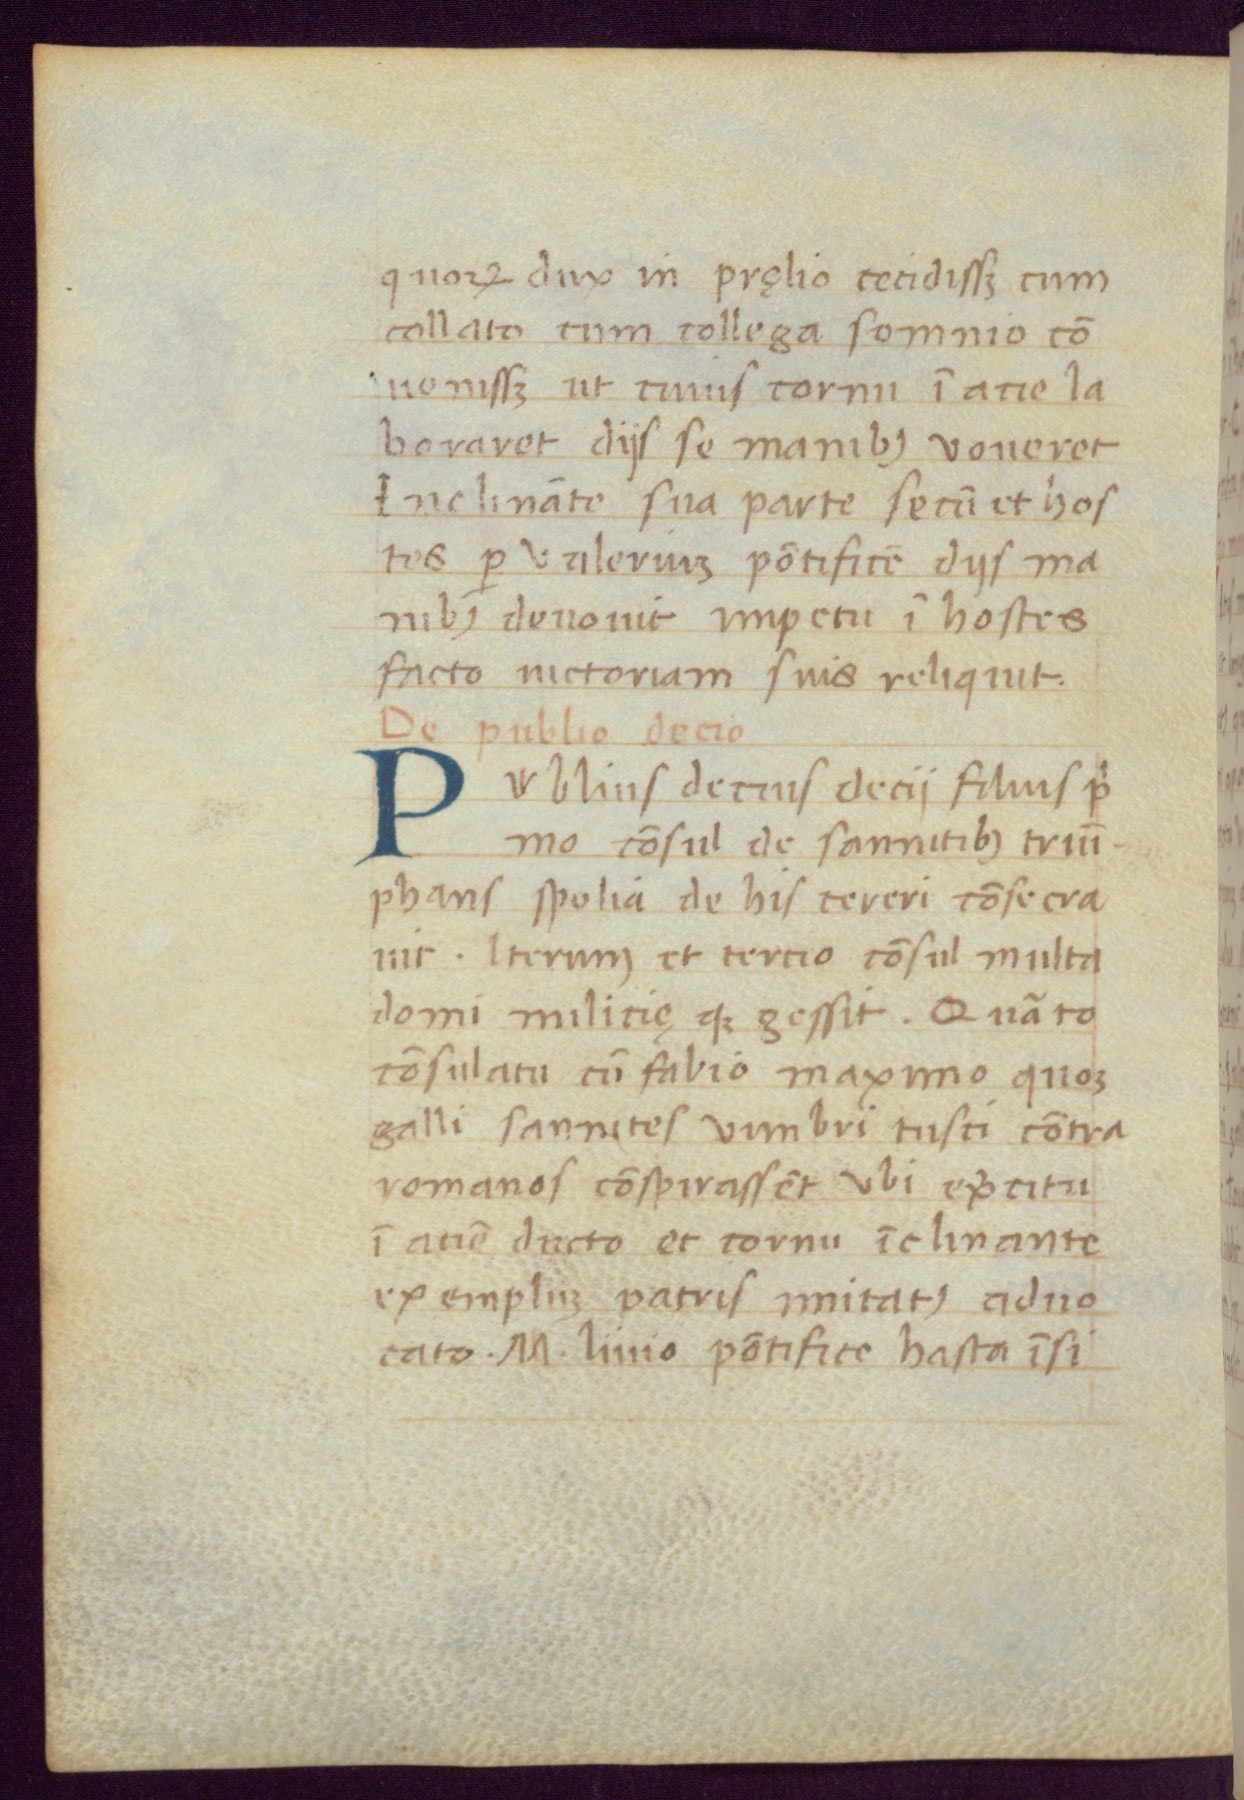 quoꝝ dux in pręlio cecidissꝫ cum
collato cum collega somnio cō
uenissꝫ ut cuius cornu ī acie la
boraret diis se manibꝰ voueret
Inclināte sua parte secū et hos
tes ꝑ valeriuꝫ pōtificē diis ma
nibꝰ deuouit impetu ī hostes
facto uictoriam suis reliquit.
De publio decio
Publius decius decij filius pͥ
mo cōsul de samnitibꝰ triū
phans spolia de his cereri cōsecra
uit . Iterum et tercio cōsul multa
domi milicię qꝫ gessit . Quāto
cōsulatu cū fabio maximo quoꝫ
galli samnites vimbri tusci cōtra
romanos cōspirassēt vbi exꝑcitu
ī aciē ducto et cornu īclinante
exempluꝫ patris imitatꝰ aduo
cato . M . liuio pōtifice hasta īsi